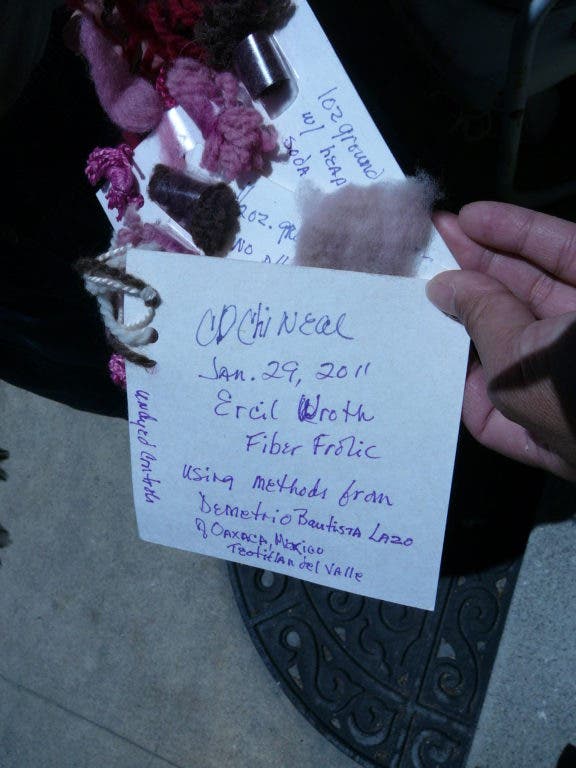 1oz ground
w/ heap
soda
2oz. gr
No
COChiNEal
Jan. 29, 2011
Ercil Wroth
Fiber Frolic
using methods from
Demetrio Bautista Lazo
of Oaxaca, Mexico
Teotitlan del Valle
undyed controls